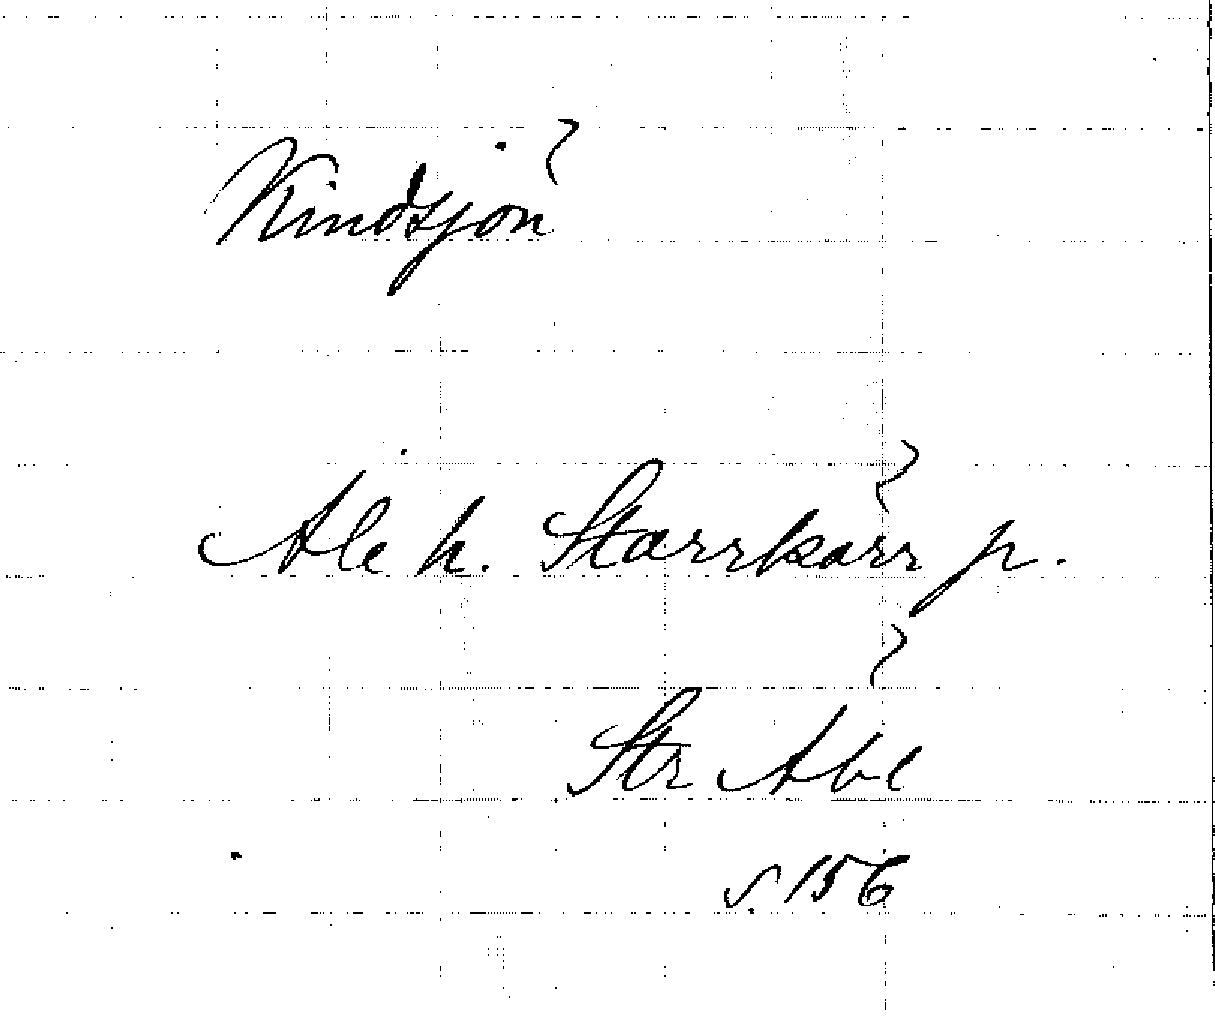 Kindsjön
Ale h. Starrkärr p.
Str Äbl
s. 156